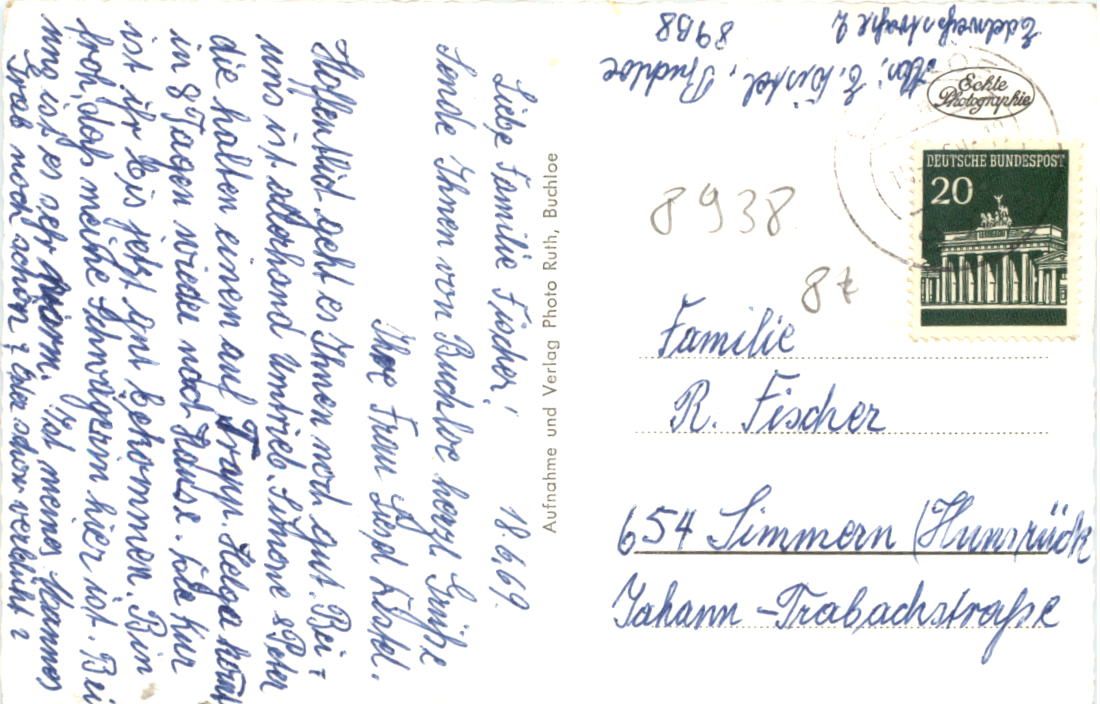 Liebe Familie Fischer! 18.6.69.
Sende Ihnen von Buchloe herzl. Grüße
Ihre Frau Liesel
Hoffentlich geht es Ihnen noch gut. Bei
uns ist allerhand Umtrieb. Simone & Peter
die halten einem auf Trapp. Helga kommt
in 8 Tagen wieder nach Hause. Die Kur
ist ihr bis jetzt gut bekommen. Bin
froh, daß meine Schwägerin hier ist. Bei
uns ist es sehr warm. Ist meines Mannes
Grab noch schön? Oder schon verblüht?
Aufnahme und Verlag Photo Ruth, Buchloe
Abs: E. Buchloe
8938
Edelweißstraße 2
Echte
Photographie
DEUTSCHE BUNDESPOST
20
8938
Familie
R. Fischer
654 Simmern (Hunsrück
Johann-Trabachstraße